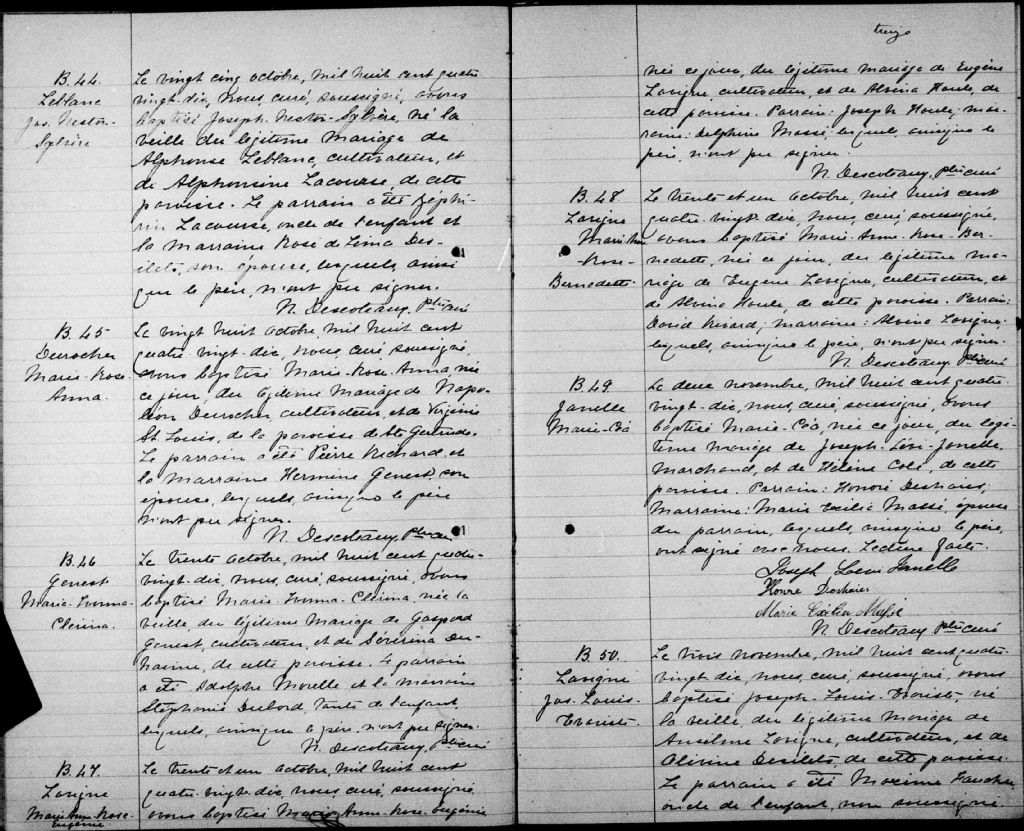 B. 44.
Leblanc
Jos. Nestor-
Sylvère
Le vingt cinq octobre, mil huit cent quatre-
vingt-dix, nous, curé, soussigné, avons
baptisé Joseph-Nestor-Sylvère, né la
veille du légitime mariage de
Alphonse Leblanc, cultivateur, et
de Alphonsine Lacourse, de cette
paroisse. Le parrain a été Zéphi-
rin Lacourse, oncle de l'enfant et
la marraine Rose de Lima Des-
ilets, son épouse, lesquels, ainsi
que le père, n'ont pu signer.
N. Descoteaux, Ptre curé
B. 45
Durocher
Marie-Rose-
Anna.
Le vingt huit octobre, mil huit cent
quatre-vingt-dix, nous, curé, soussigné,
avons baptisé Marie-Rose-Anna, née
ce jour, du légitime mariage de Napo-
léon Durocher cultivateur, et de Virginie
St Louis, de la paroisse de Ste Gertrude.
Le parrain a été Pierre Richard et
la marraine Hermine Genest, son
épouse, lesquels, ainsi que le père
n'ont pu signer.
N. Descoteaux, Ptre curé
B. 46
Genest
Marie-Ivonna-
Clérina.
Le trente octobre, mil huit cent quatre-
vingt-dix, nous, curé, soussigné, avons
baptisé Marie-Ivonna-Clérina, née la
veille, du légitime mariage de Gaspard
Genest, cultivateur, et de Séverina Du-
haime, de cette paroisse. Le parrain
a été Adolphe Morelle et la marraine
Stéphanie Dubord, tante de l'enfant,
lesquels, ainsi que le père, n'ont pu signer.
N. Descoteaux, Ptre curé
B. 47.
Lavigne
Marie-Anne-Rose-
Eugénie
Le trente et un octobre, mil huit cent
quatre-vingt-dix, nous, curé, soussigné,
avons baptisé Marie-Anne-Rose-Eugénie
treize
née ce jour, du légitime mariage de Eugène
Lavigne, cultivateur, et de Alvina Houle, de
cette paroisse. Parrain: Joseph Houle; mar-
raine: Delphine Massé, lesquels, ainsi que le
père, n'ont pu signer.
N. Descoteaux, Ptre curé
B. 48
Lavigne
Marie-Ann
-Rose-
Bernadette
Le trente et un octobre, mil huit cent
quatre-vingt-dix, nous, curé, soussigné,
avons baptisé Marie-Anne-Rose-Ber-
nadette, née ce jour, du légitime ma-
riage de Eugène Lavigne, cultivateur, et
de Alvina Houle, de cette paroisse. Parrain:
David Rivard, marraine: Alvina Lavigne,
lesquels, ainsi que le père, n'ont pu signer.
N. Descoteaux, Ptre curé
B. 49
Janelle
Marie-Céa
Le deux novembre, mil huit cent quatre-
vingt-dix, nous, curé, soussigné, avons
baptisé Marie-Céa, née ce jour, du légi-
time mariage de Joseph-Lévi-Janelle,
marchand, et de Hélène Colé, de cette
paroisse. Parrain: Honoré Deshaies,
marraine: Marie Exilia Massé, épouse
du parrain, lesquels, ainsi que le père,
ont signé avec nous. Lecture faite.
Joseph Janelle
Honoré Deshaies
Marie Exilia Massé
N. Descoteaux Ptre curé
B. 50.
Lavigne
Jos. Louis-
Evariste
Le trois novembre, mil huit cent quatre-
vingt-dix, nous, curé, soussigné, avons
baptisé Joseph-Louis-Evariste, né
la veille, du légitime mariage de
Anselme Lavigne, cultivateur, et de
Olivine Desilets, de cette paroisse.
Le parrain a été Maxime Gaucher,
oncle de l'enfant, non soussigné